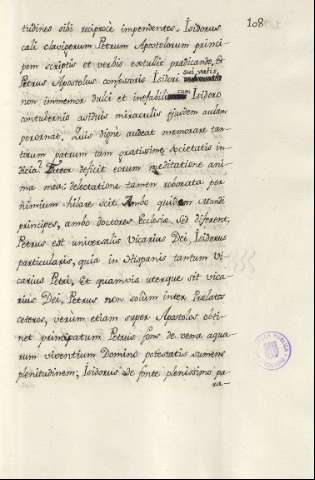 108
tudines sibi reciprocè impendentes. Isidorus
cæli clavigerum Petrum Apostolorum princi-
pem scriptis et verbis extulit prædicando, et
Petrus Apostolus confessoris Isidori sui vatis,
non immemor dulci et inefabili cum Isidoro
contubernio assiduis miraculis ejusdem aulam
perornat. Quis dignè audeat memorare tan-
torum patrum tam gratissimæ societatis in
dicia? deficit eorum meditatione ani
ma mea: delectatione tamen roborata per
nimium hilare scit. Ambo quidem Mundi
principes, ambo doctores Ecclesiæ sed diferent,
Petrus est universalis vicarius Dei, Isidorus
particularis, quia in Hispania tantum vi-
carius Petri, Et quamvis uterque sit vica
rius Dei, Petrus non solùm inter Prelatos
ceteros, verùm etiam super Apostolos obti-
net principatum Petrus fons de vena aqua
rum viventium Domino potestatis sumens
plenitudinem; Isidorus de fonte plenissimo pa
ra-